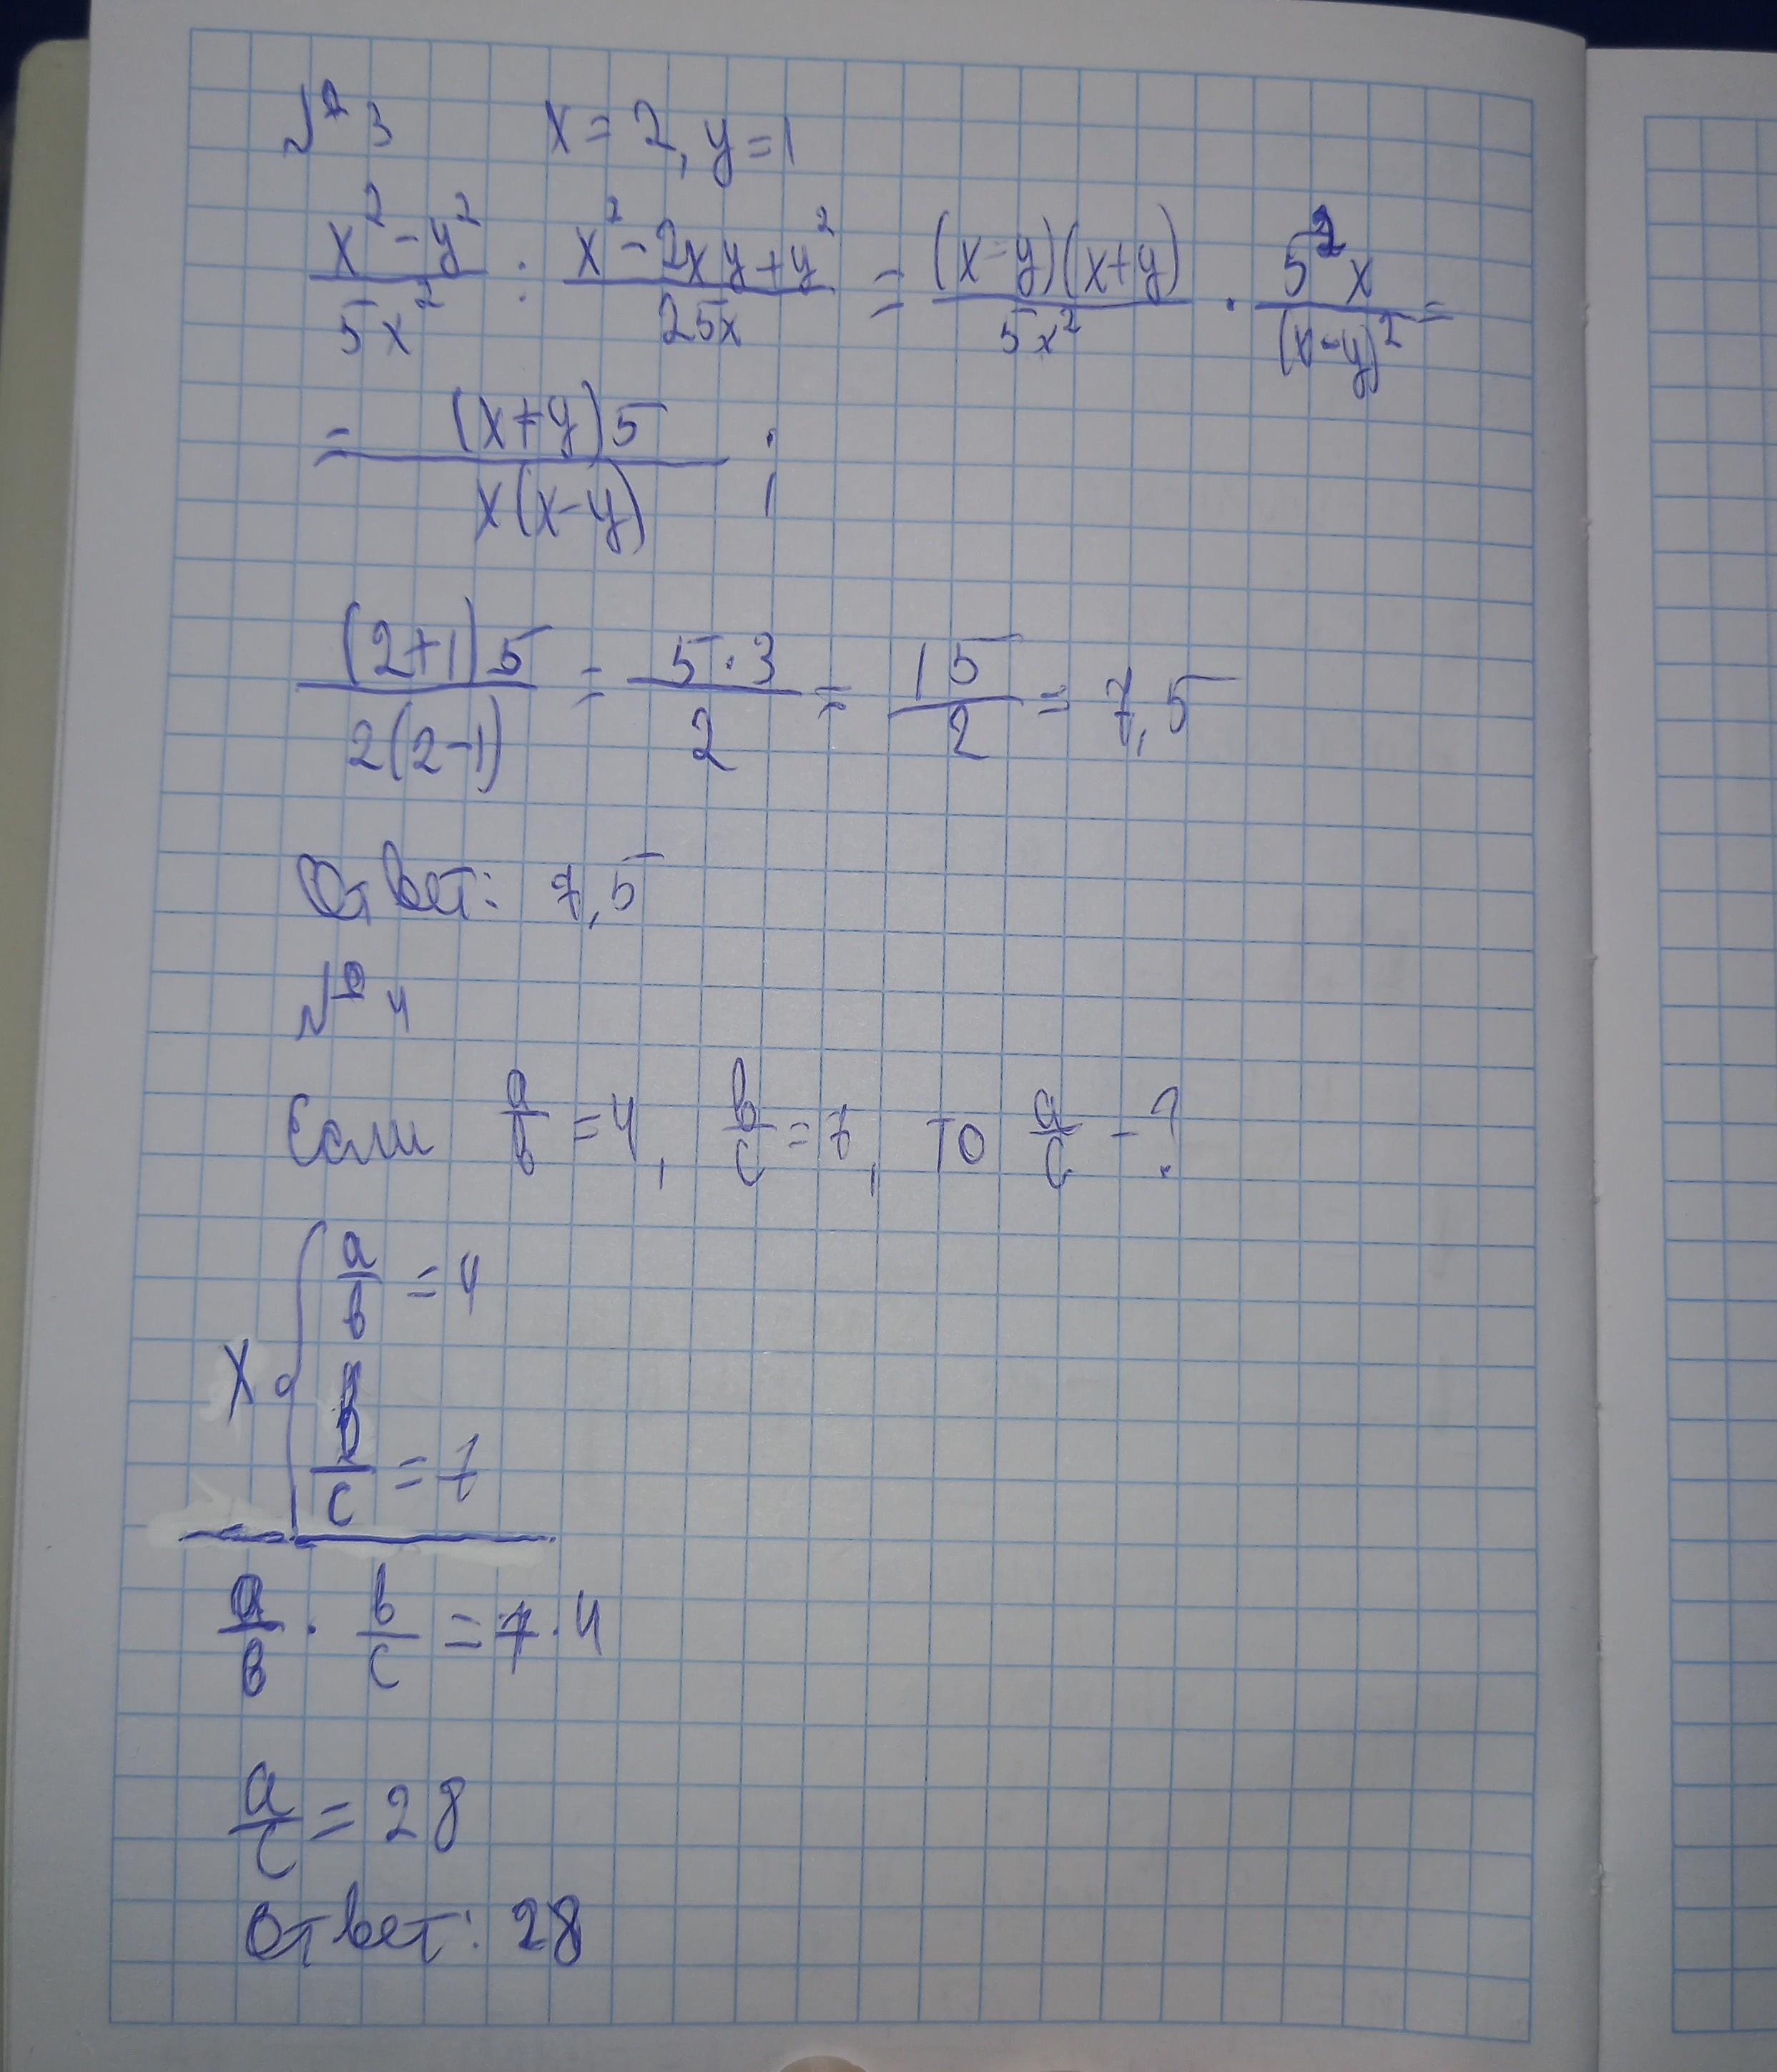 № 3 x = 2, y = 1
(x² - y²)/(5x²) : (x² - 2xy + y²)/(25x) = ((x - y)(x + y))/(5x²) · (5²x)/((x - y)²) =
= ((x + y)5)/(x(x - y)) ;
((2+1)5)/(2(2-1)) = (5·3)/2 = 15/2 = 7,5
Ответ: 7,5
№ 4
Если a/b = 4, b/c = 7, то a/c - ?
x { a/b = 4
b/c = 7
a/b · b/c = 7·4
a/c = 28
Ответ: 28